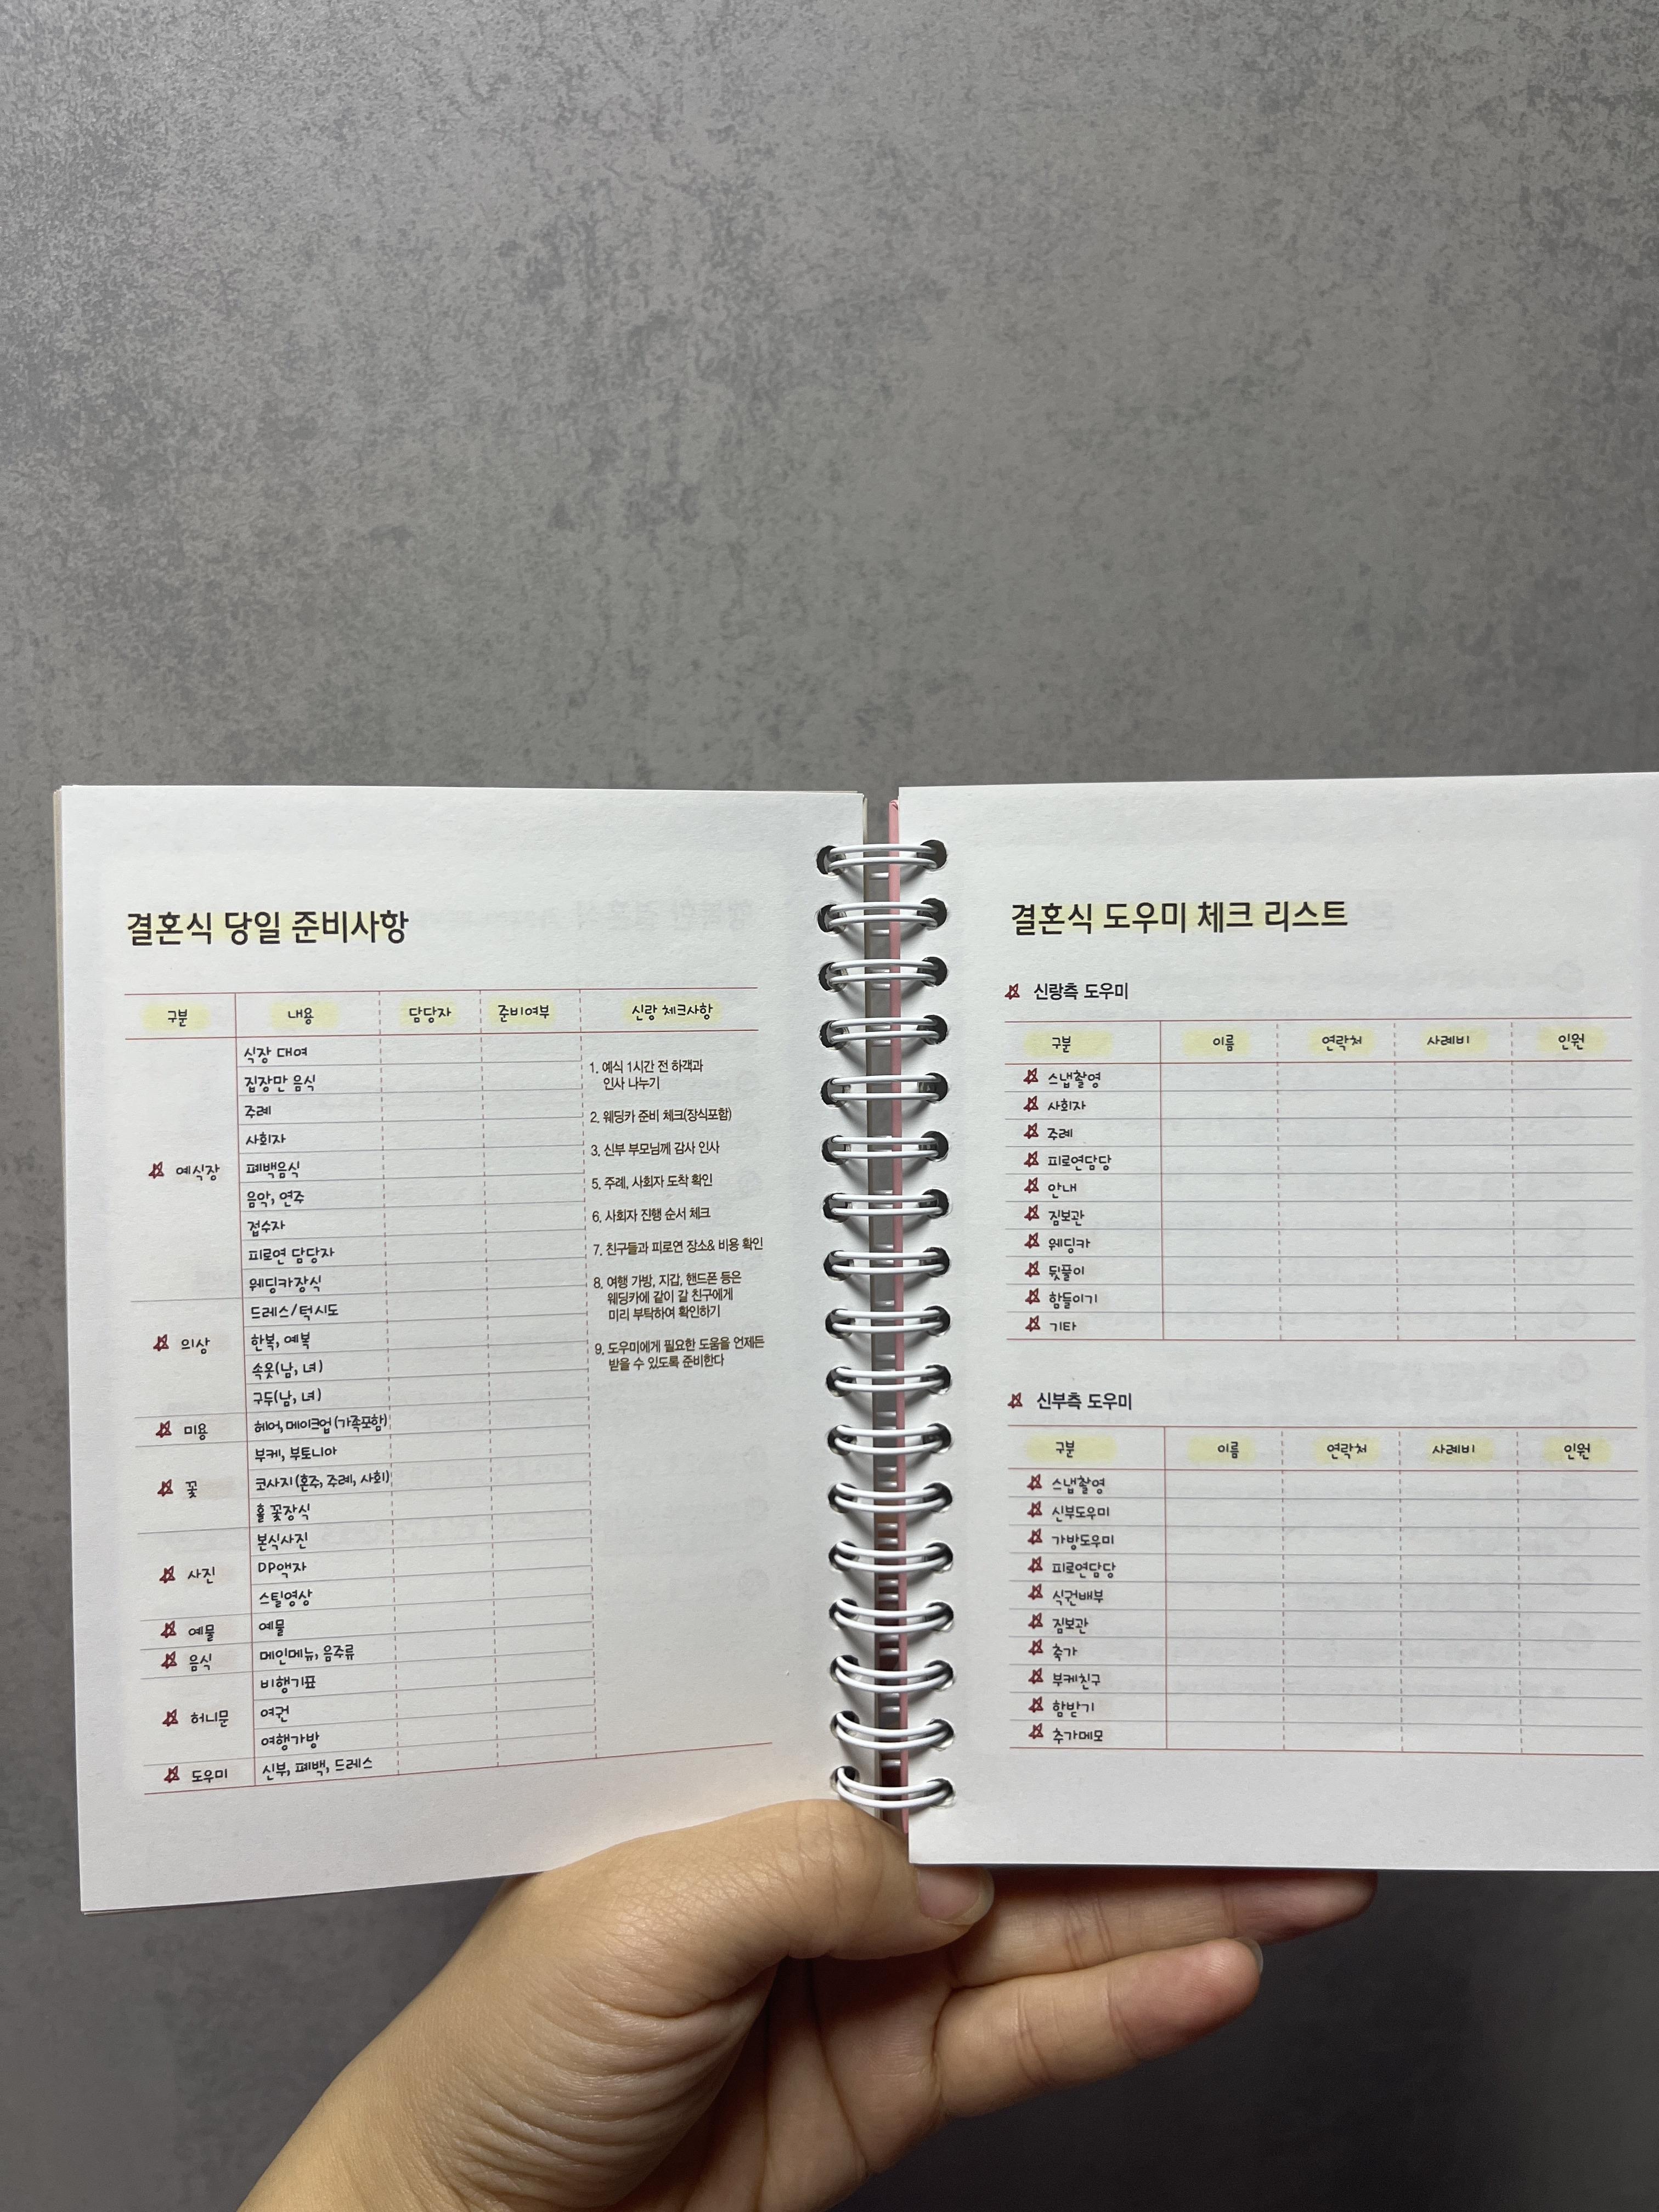 결혼식 당일 준비사항
구분 내용 담당자 준비여부 신랑 체크사항
예식장
식장 대여
집장만 음식
주례
사회자
폐백음식
음악, 연주
접수자
피로연 담당자
웨딩카장식
의상
드레스/턱시도
한복, 예복
속옷(남, 녀)
구두(남, 녀)
미용
헤어, 메이크업(가족포함)
꽃
부케, 부토니아
코사지(혼주, 주례, 사회)
홀 꽃장식
사진
본식사진
DP액자
스틸영상
예물
예물
음식
메인메뉴, 음주류
허니문
비행기표
여권
여행가방
도우미
신부, 폐백, 드레스
1. 예식 1시간 전 하객과
인사 나누기
2. 웨딩카 준비 체크(장식포함)
3. 신부 부모님께 감사 인사
5. 주례, 사회자 도착 확인
6. 사회자 진행 순서 체크
7. 친구들과 피로연 장소& 비용 확인
8. 여행 가방, 지갑, 핸드폰 등은
웨딩카에 같이 갈 친구에게
미리 부탁하여 확인하기
9. 도우미에게 필요한 도움을 언제든
받을 수 있도록 준비한다
결혼식 도우미 체크 리스트
신랑측 도우미
구분 이름 연락처 사례비 인원
스냅촬영
사회자
주례
피로연담당
안내
짐보관
웨딩카
뒷풀이
함들이기
기타
신부측 도우미
구분 이름 연락처 사례비 인원
스냅촬영
신부도우미
가방도우미
피로연담당
식권배부
짐보관
축가
부케친구
함받기
추가메모